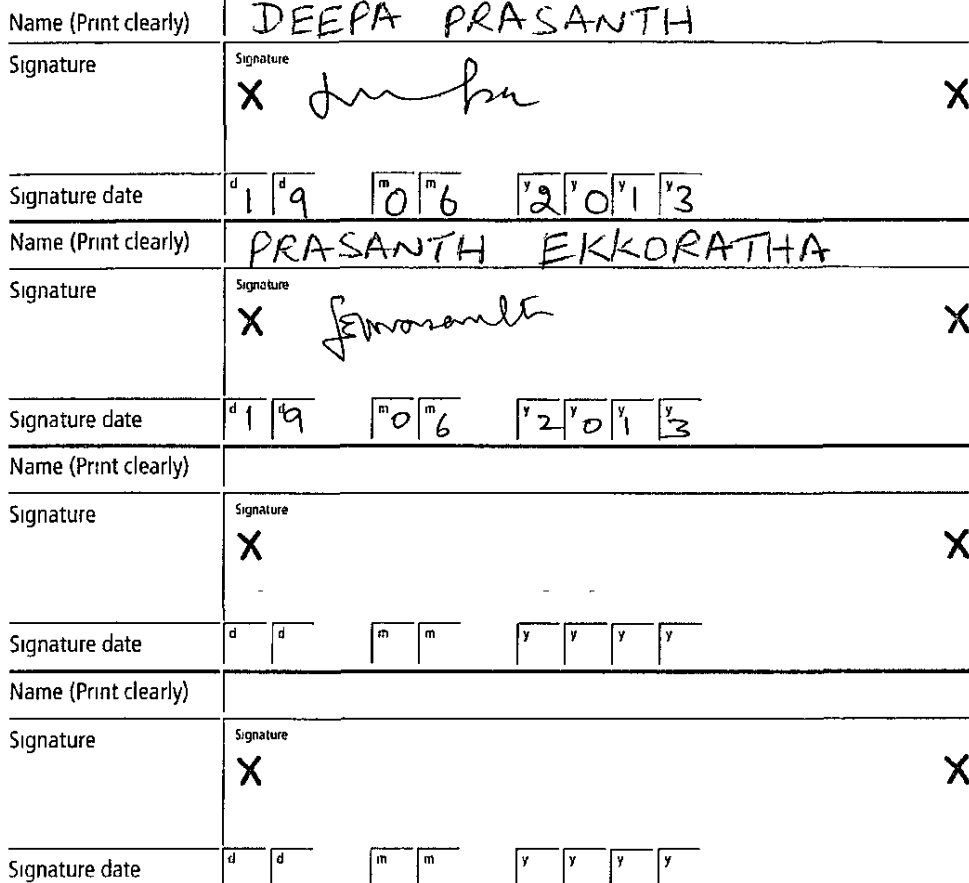 Name (Print clearly) DEEPA PRASANTH
Signature Signature
X X
Signature date d1 d9 m0 m6 y2 y0 y1 y3
Name (Print clearly) PRASANTH EKKORATHA
Signature Signature
X X
Signature date d1 d9 m0 m6 y2 y0 y1 y3
Name (Print clearly)
Signature Signature
X X
Signature date d d m m y y y y
Name (Print clearly)
Signature Signature
X X
Signature date d d m m y y y y